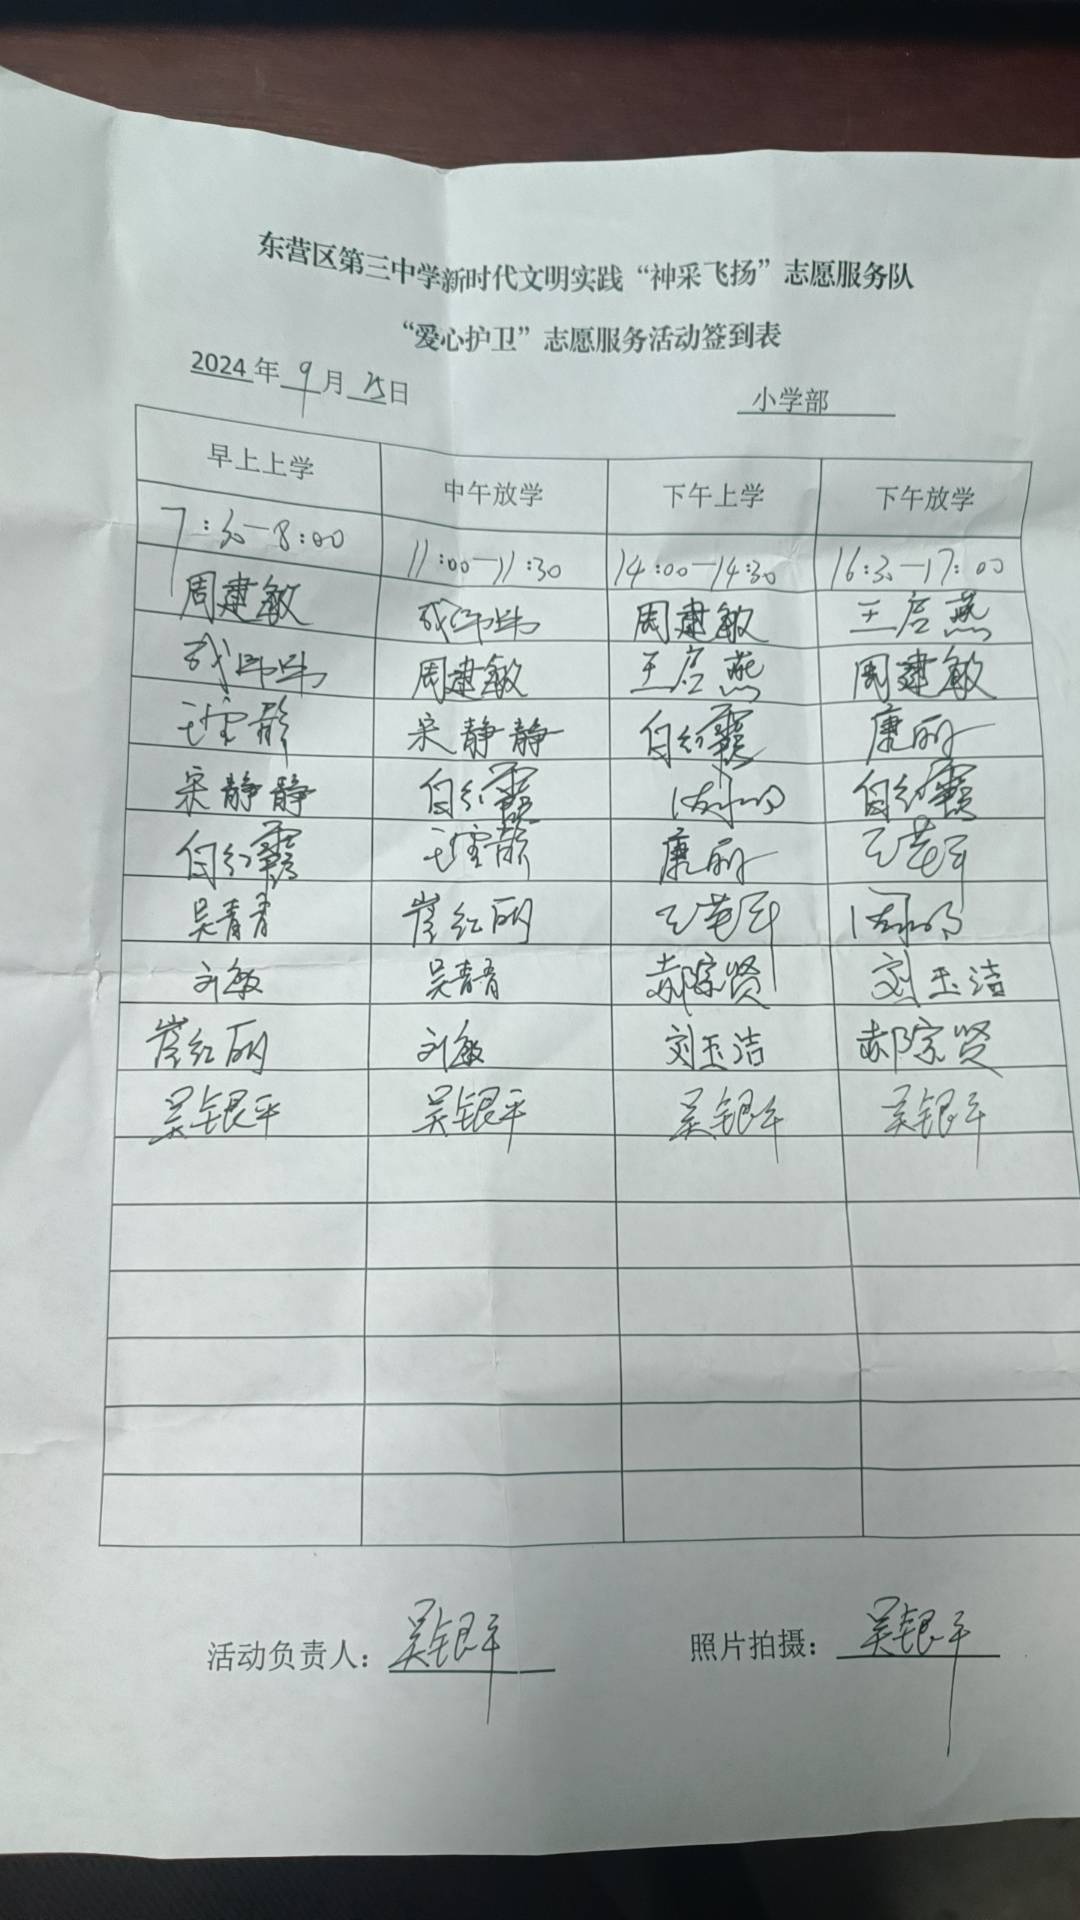 东营区第三中学新时代文明实践“神采飞扬”志愿服务队
“爱心护卫”志愿服务活动签到表
2024年 9月 25日 小学部
早上上学 中午放学 下午上学 下午放学
7:30—8:00 11:00—11:30 14:00—14:30 16:30—17:00
周建敏 周建敏 王启燕
周建敏 王启燕 周建敏
宋静静 白红霞 唐丽
宋静静 白红霞 白红霞
白红霞 唐丽
吴青青 崔红丽
刘敏 吴青青 郝宗贤 刘玉洁
崔红丽 刘敏 刘玉洁 郝宗贤
吴银平 吴银平 吴银平 吴银平
活动负责人：吴银平 照片拍摄：吴银平